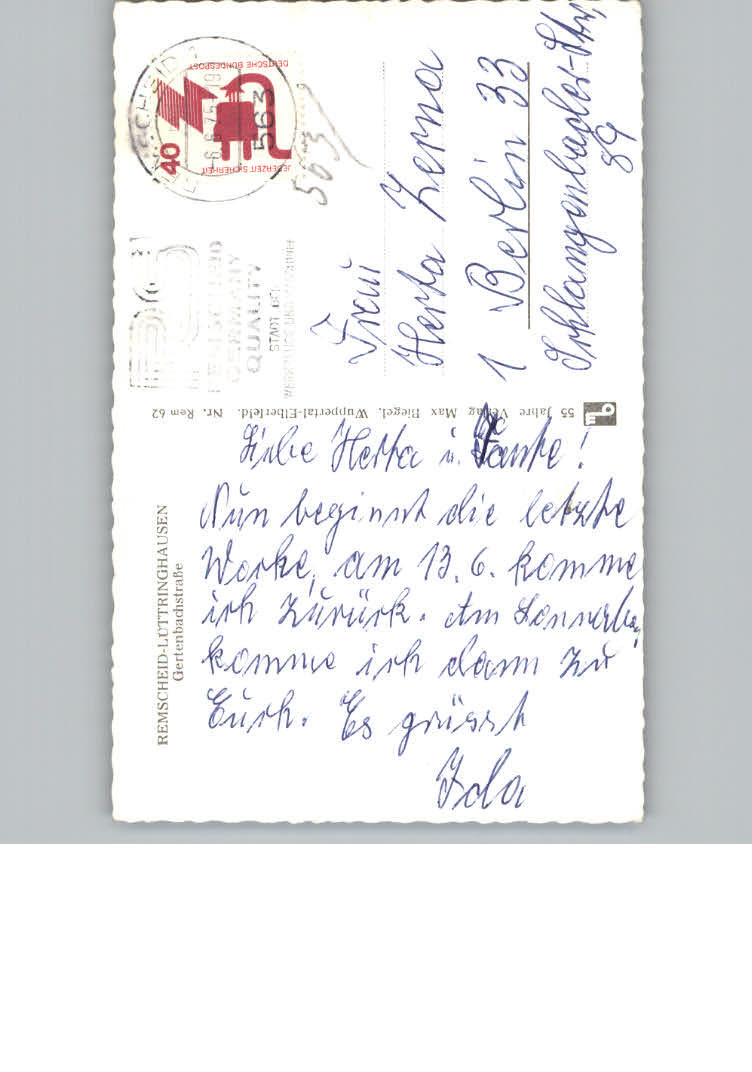 REMSCHEID-LÜTTRINGHAUSEN
Gertenbachstraße
Liebe Herta u. Tante!
Nun beginnt die letzte
Woche, am 13. 6. komme
ich zurück. Am Sonnerbg
komme ich dann zu
Euch. Es grüsst
Ida
55 Jahre Verlag Max Biegel, Wuppertal-Elberfeld. Nr. Rem 62
REMSCHEID
GERMANY
QUALITY
STADT DER
563
-6.6.75
DEUTSCHE BUNDESPOST
JEDERZEIT SICHERHEIT
40
563
Frau
Herta Zerna
1 Berlin 33
Schlangenbader-Str.
89